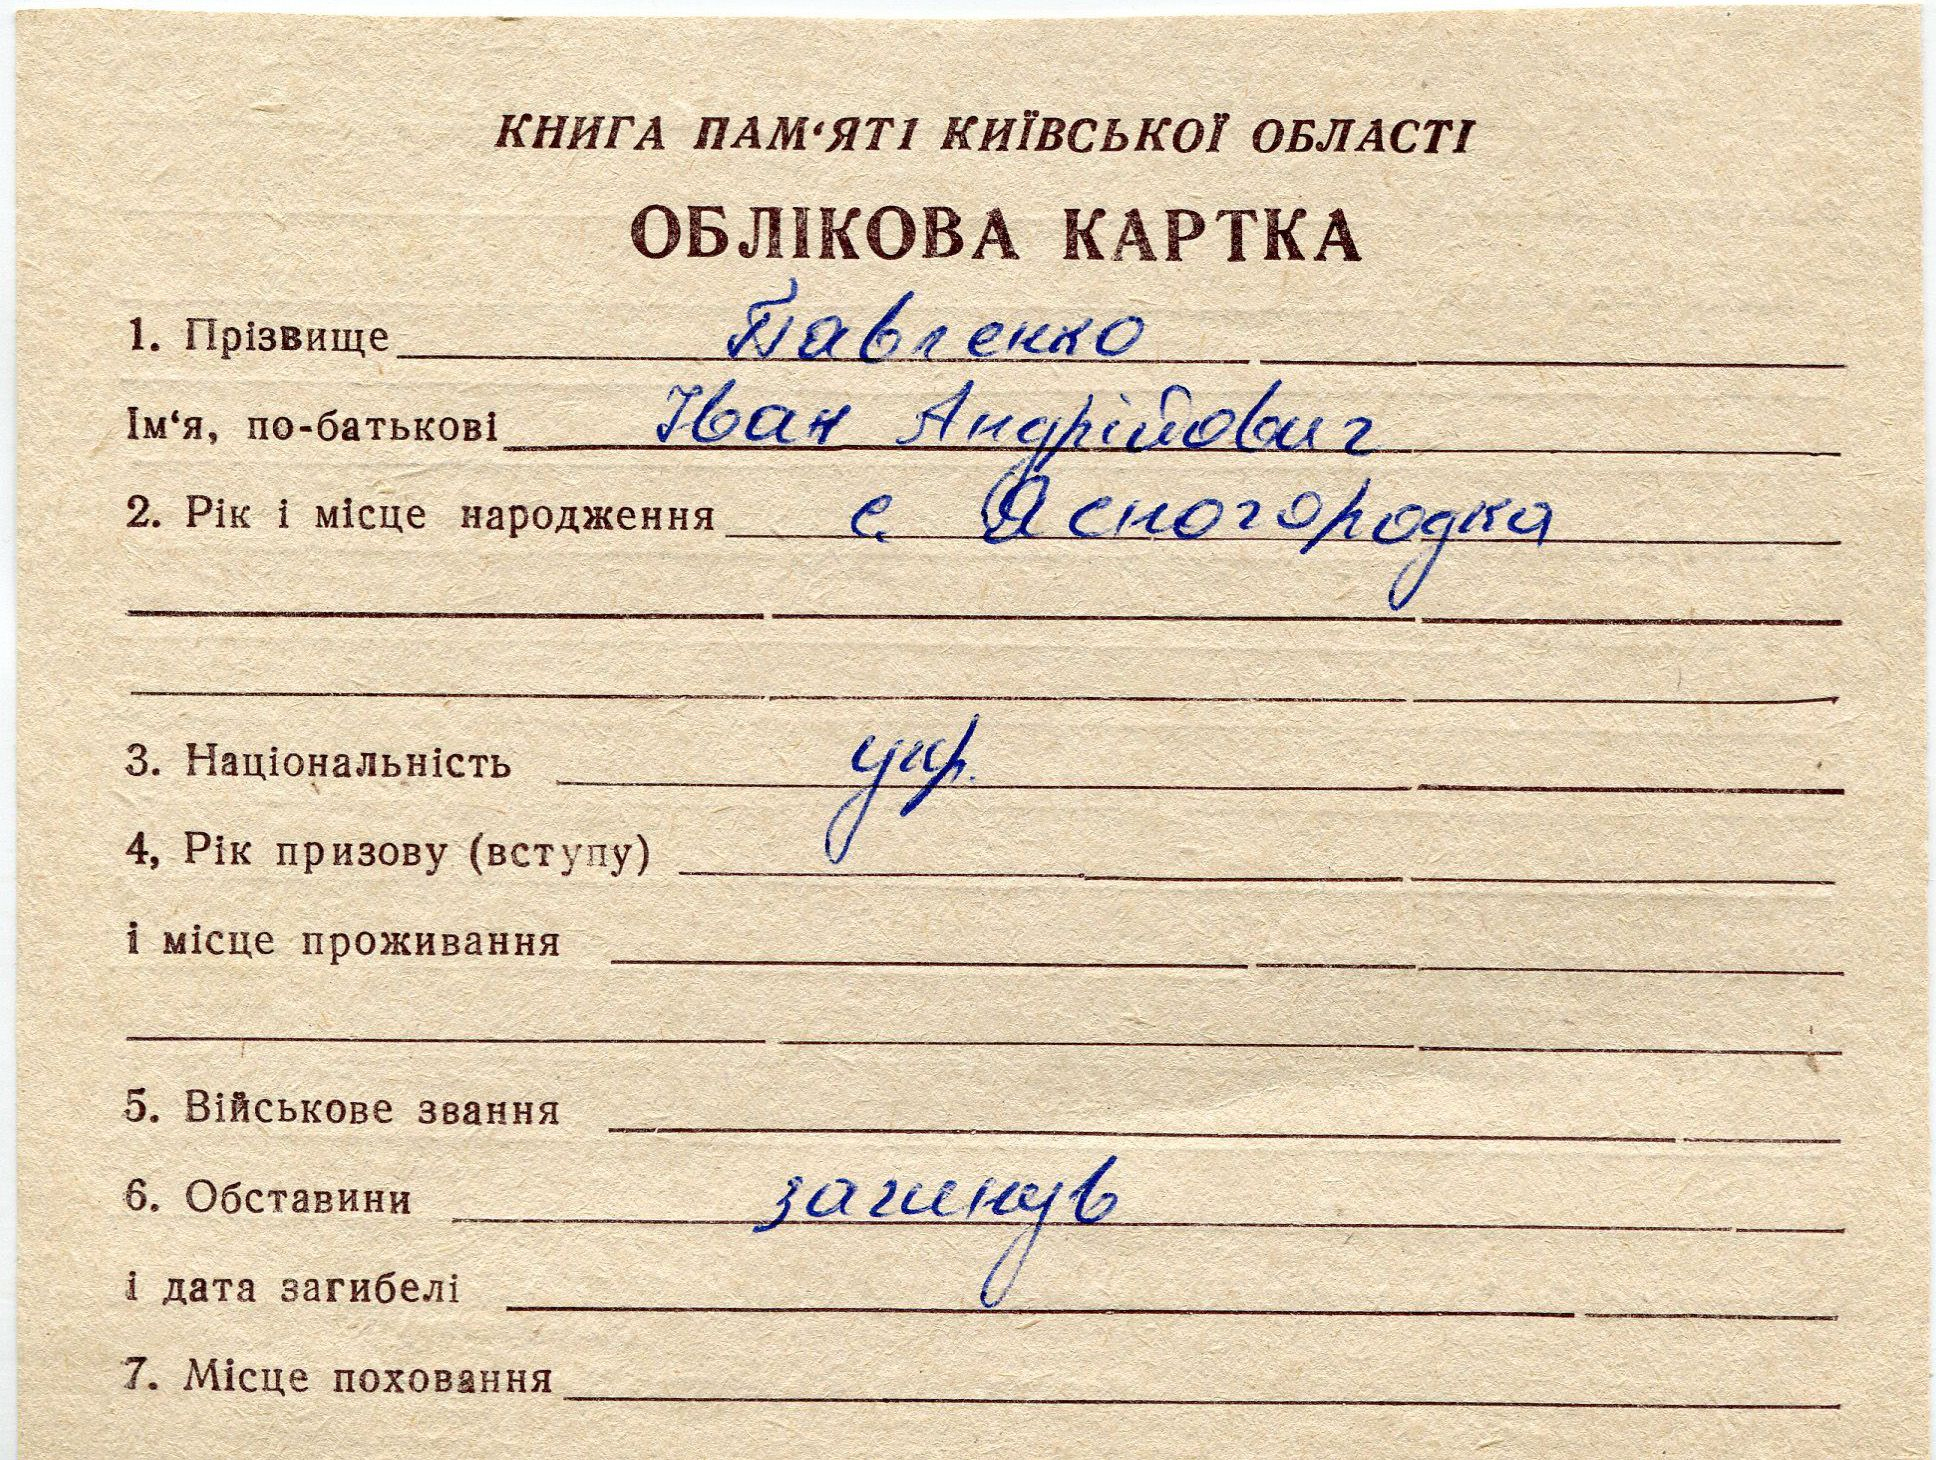 КНИГА ПАМ‘ЯТІ КИЇВСЬКОЇ ОБЛАСТІ
ОБЛІКОВА КАРТКА
1. Прізвище Павленко
Ім‘я, по-батькові Іван Андрійович
2. Рік і місце народження с. Ясногородка
3. Національність укр.
4, Рік призову (вступу)
і місце проживання
5. Військове звання
6. Обставини загинув
і дата загибелі
7. Місце поховання